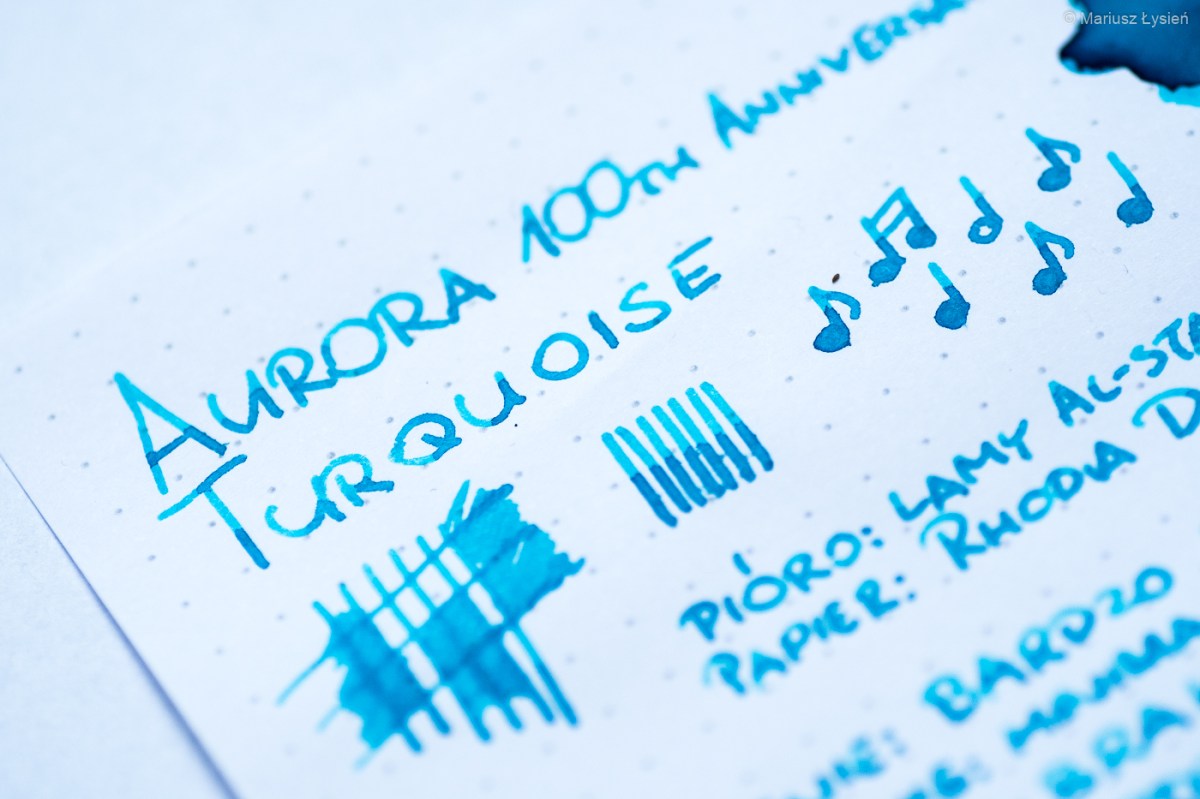 © Mariusz Łysień
AURORA 100TH
TURQUOISE
PIÓRO: LAMY
PAPIER: RHODIA
BARDZO